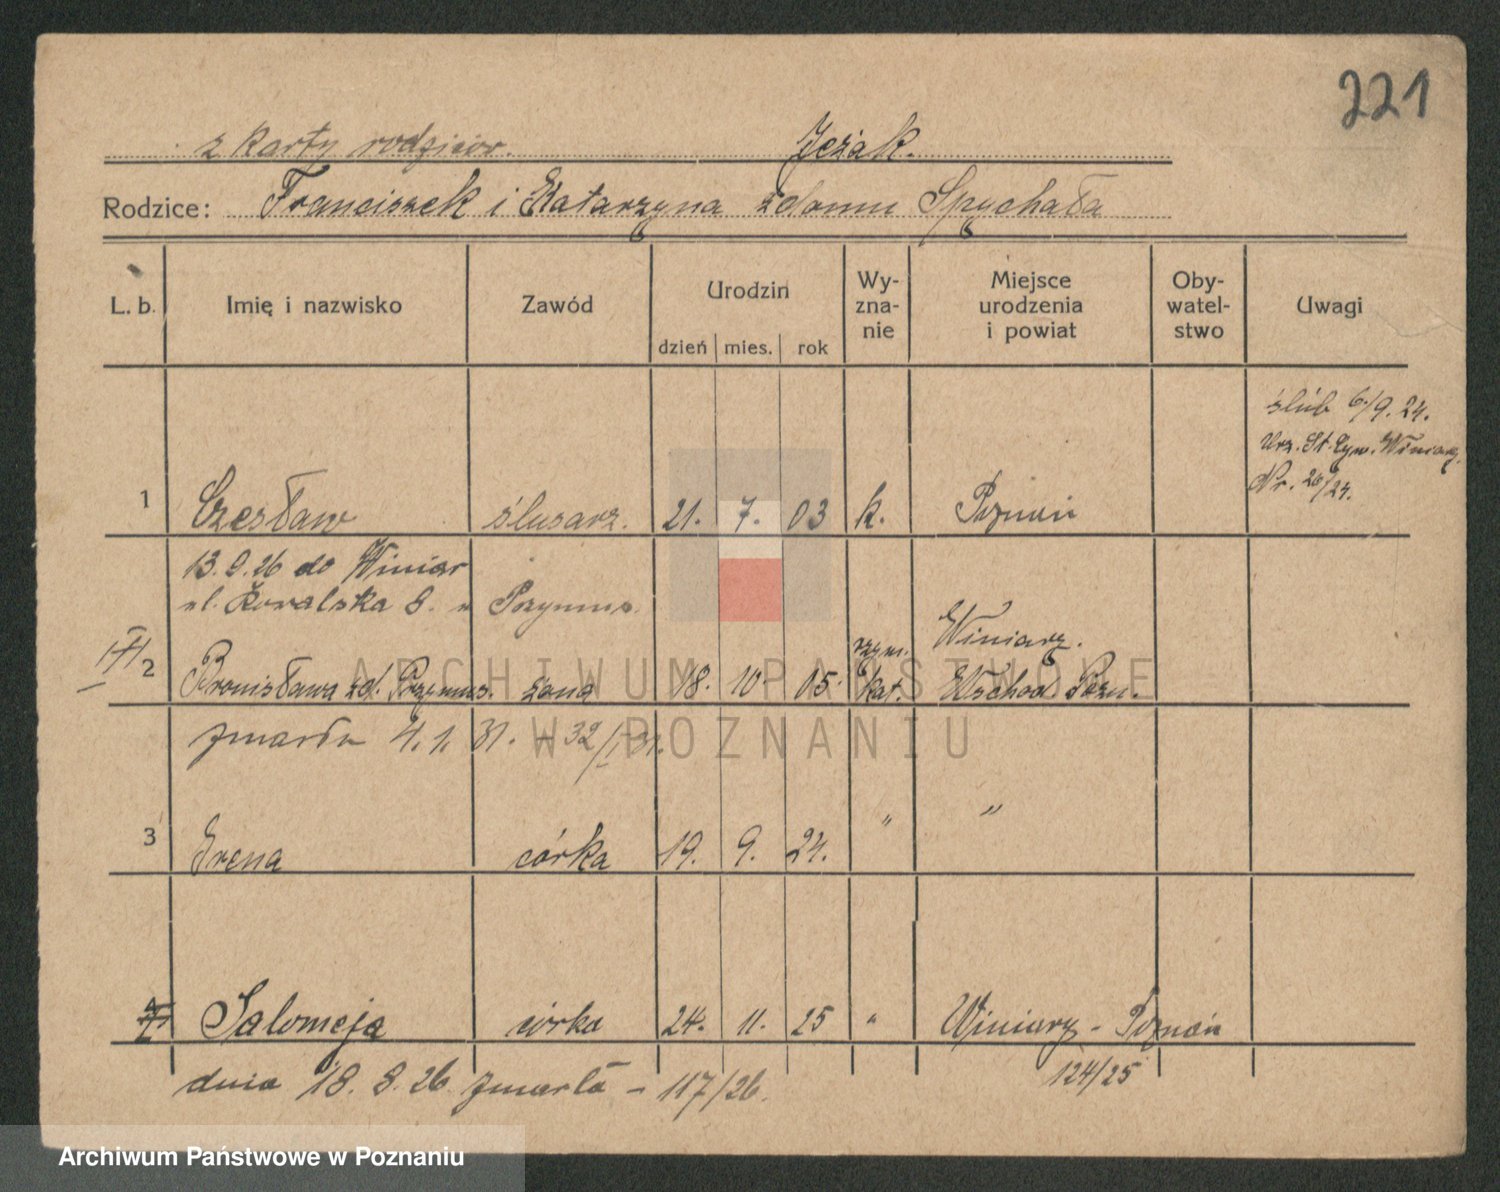 221
z karty rodziców. Jeżak.
Rodzice: Franciszek i Katarzyna z domu Spychała
L. b. Imię i nazwisko Zawód Urodzin Wy-zna-nie Miejsce urodzenia i powiat Oby-watel-stwo Uwagi
dzień mies. rok
ślub 6/9. 24.
Urz. St. Cyw. Winiary.
Nr. 26/24.
1 Czesław ślusarz. 21. 7. 03 k. Poznań
13.9.26 do Winiar
ul. Kowalska 8. u Przymus.
2 Bronisława zd. Przymus. żona 18. 10. 05. rzym. kat. Winiary. Wschod. Pozn.
zmarła 4. 1. 31. - 32/I 31.
3 Irena córka 19. 9. 24. " "
4 Salomeja córka 24. 11. 25 " Winiary - Poznań
124/25
dnia 18. 8. 26 zmarła - 117/26.
ARCHIWUM PAŃSTWOWE
W POZNANIU
Archiwum Państwowe w Poznaniu